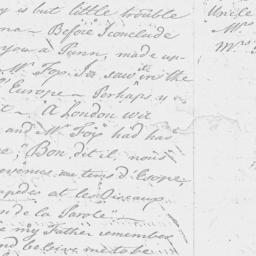 y is but little trouble
na - Before I conclude
you a Punn, made up-
Mr Fop. I saw it in the
Europe - Perhaps y
it - A London wit
and Mr Fox had had
e; "Bon, dit il, nous
evenus au tems d'Esope,
upedes et les Oiseaux
on de la Parole" -
e my Father remember
nd beleive me to be
Uncle
Mrs
Mrs